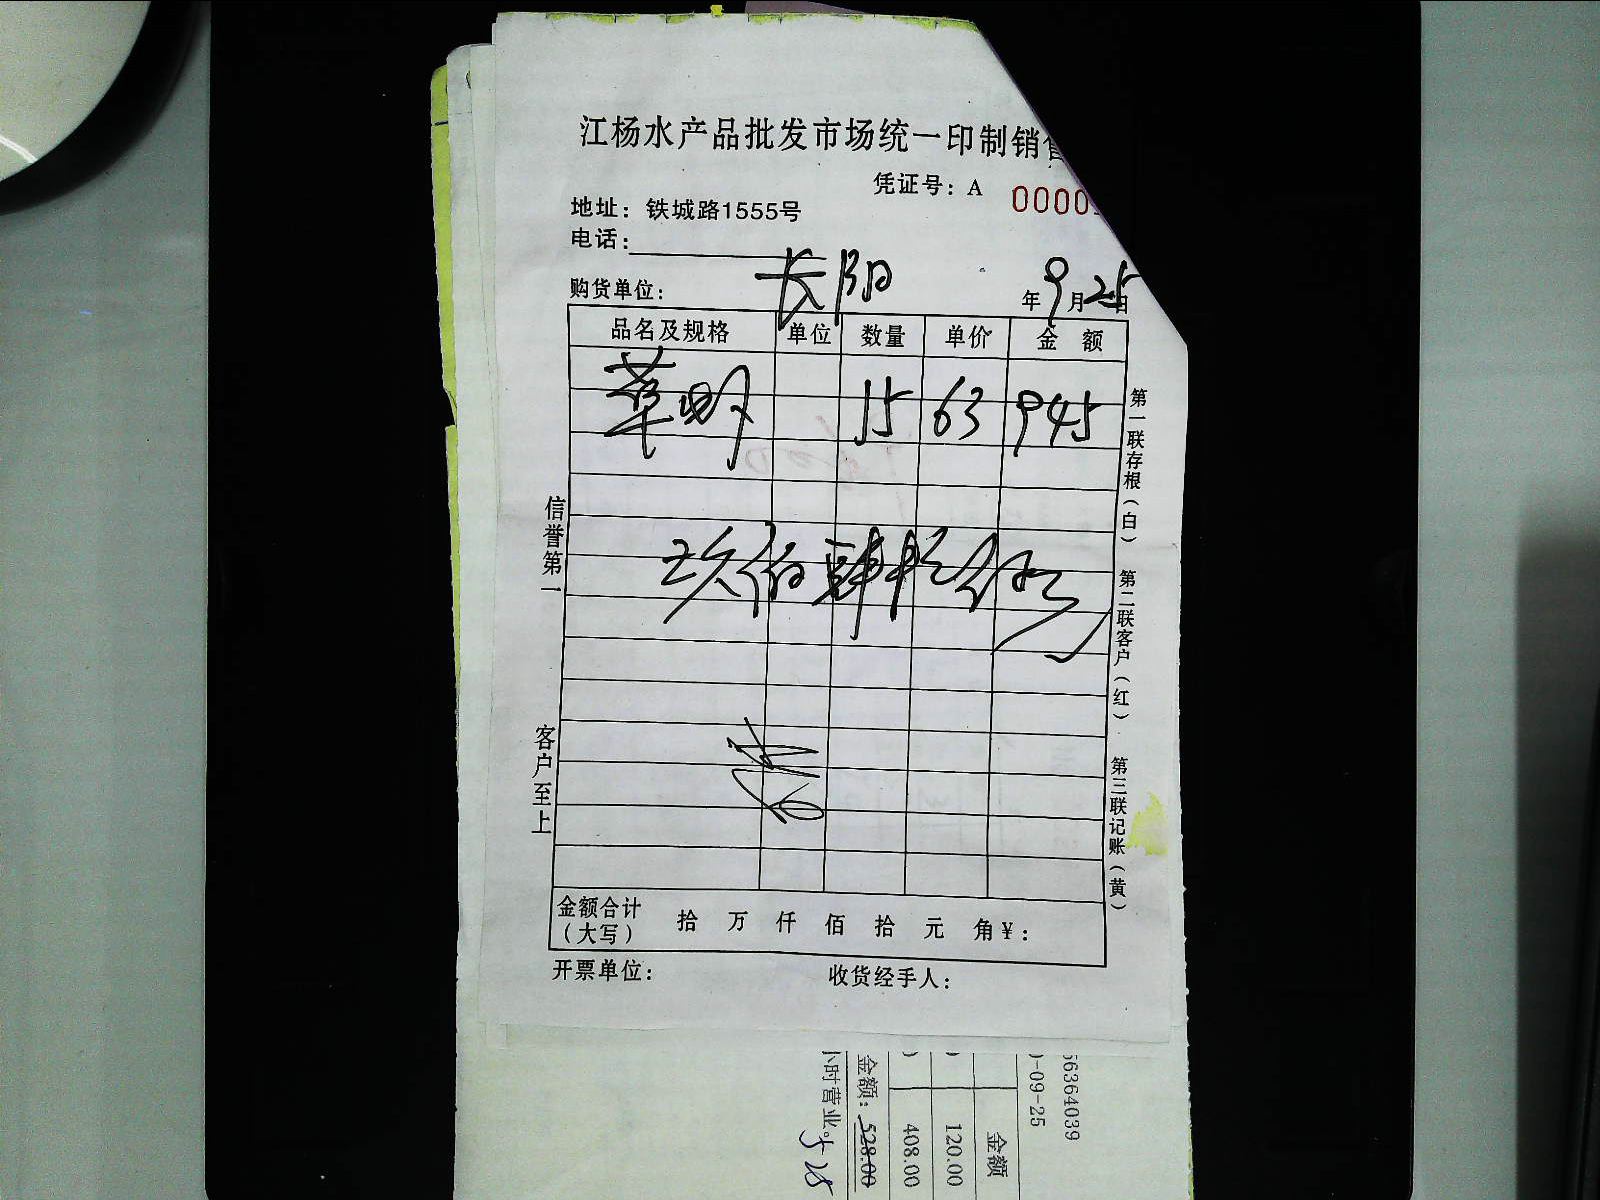 江杨水产品批发市场统一印制销售
凭证号：A 0000
地址：铁城路1555号
电话：
购货单位： 长阳 年9月25日
品名及规格 单位 数量 单价 金 额
草 15 63 945
玖佰肆拾伍元
信誉第一
客户至上
第一联存根（白） 第二联客户（红） 第三联记账（黄）
金额合计（大写） 拾 万 仟 佰 拾 元 角 ¥：
开票单位： 收货经手人：
56364039
-09-25
金额
120.00
408.00
金额：528.00
小时营业。
528